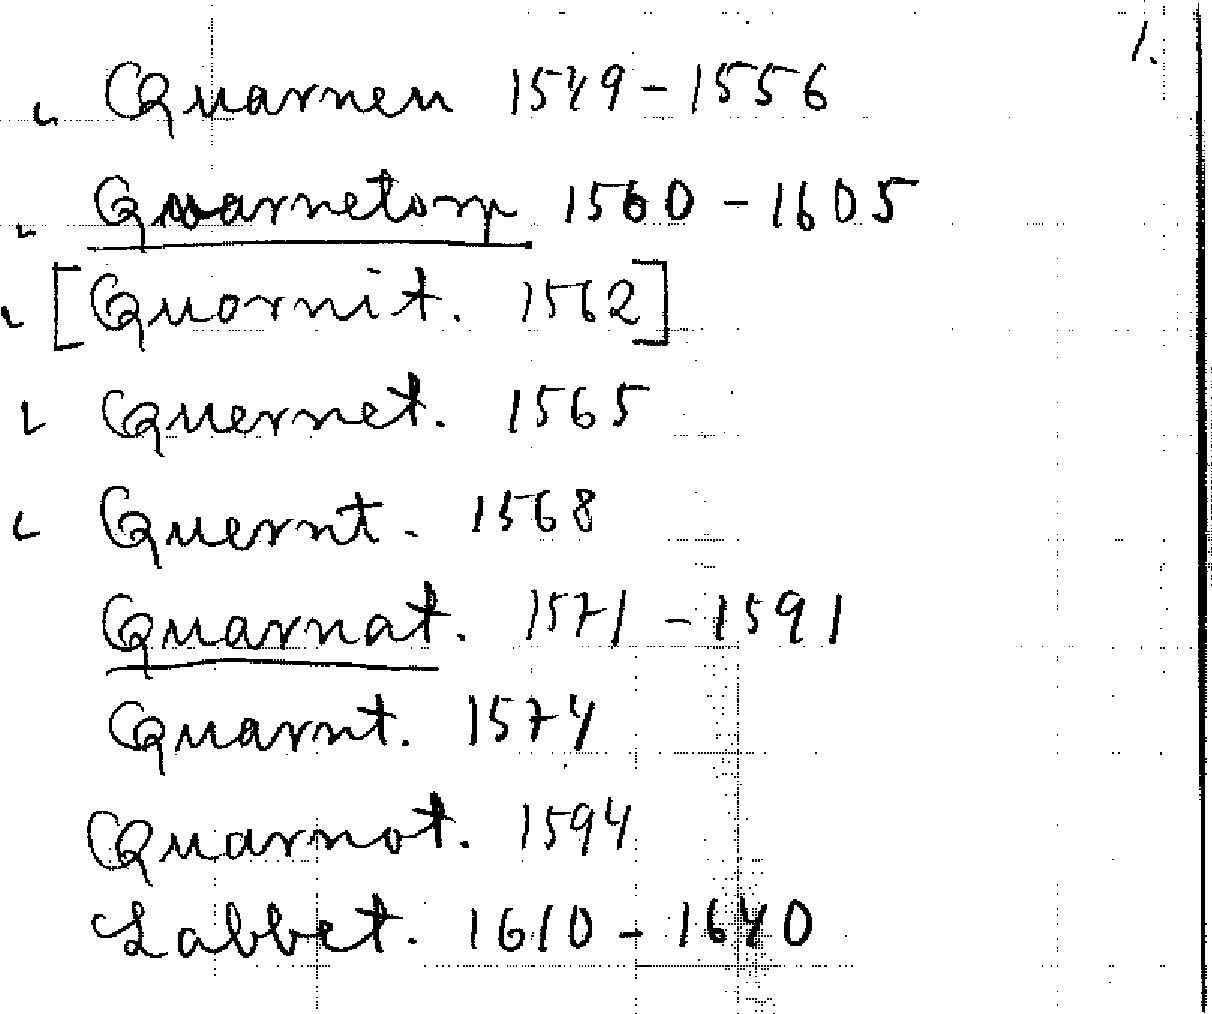 1.
Quarnen 1549-1556
Qvarnetorp 1560-1605
[Quornit. 1562]
Quernet. 1565
Quernt. 1568
Quarnat. 1571-1591
Quarnt. 1574
Quarnot. 1594
Labbet. 1610-1640